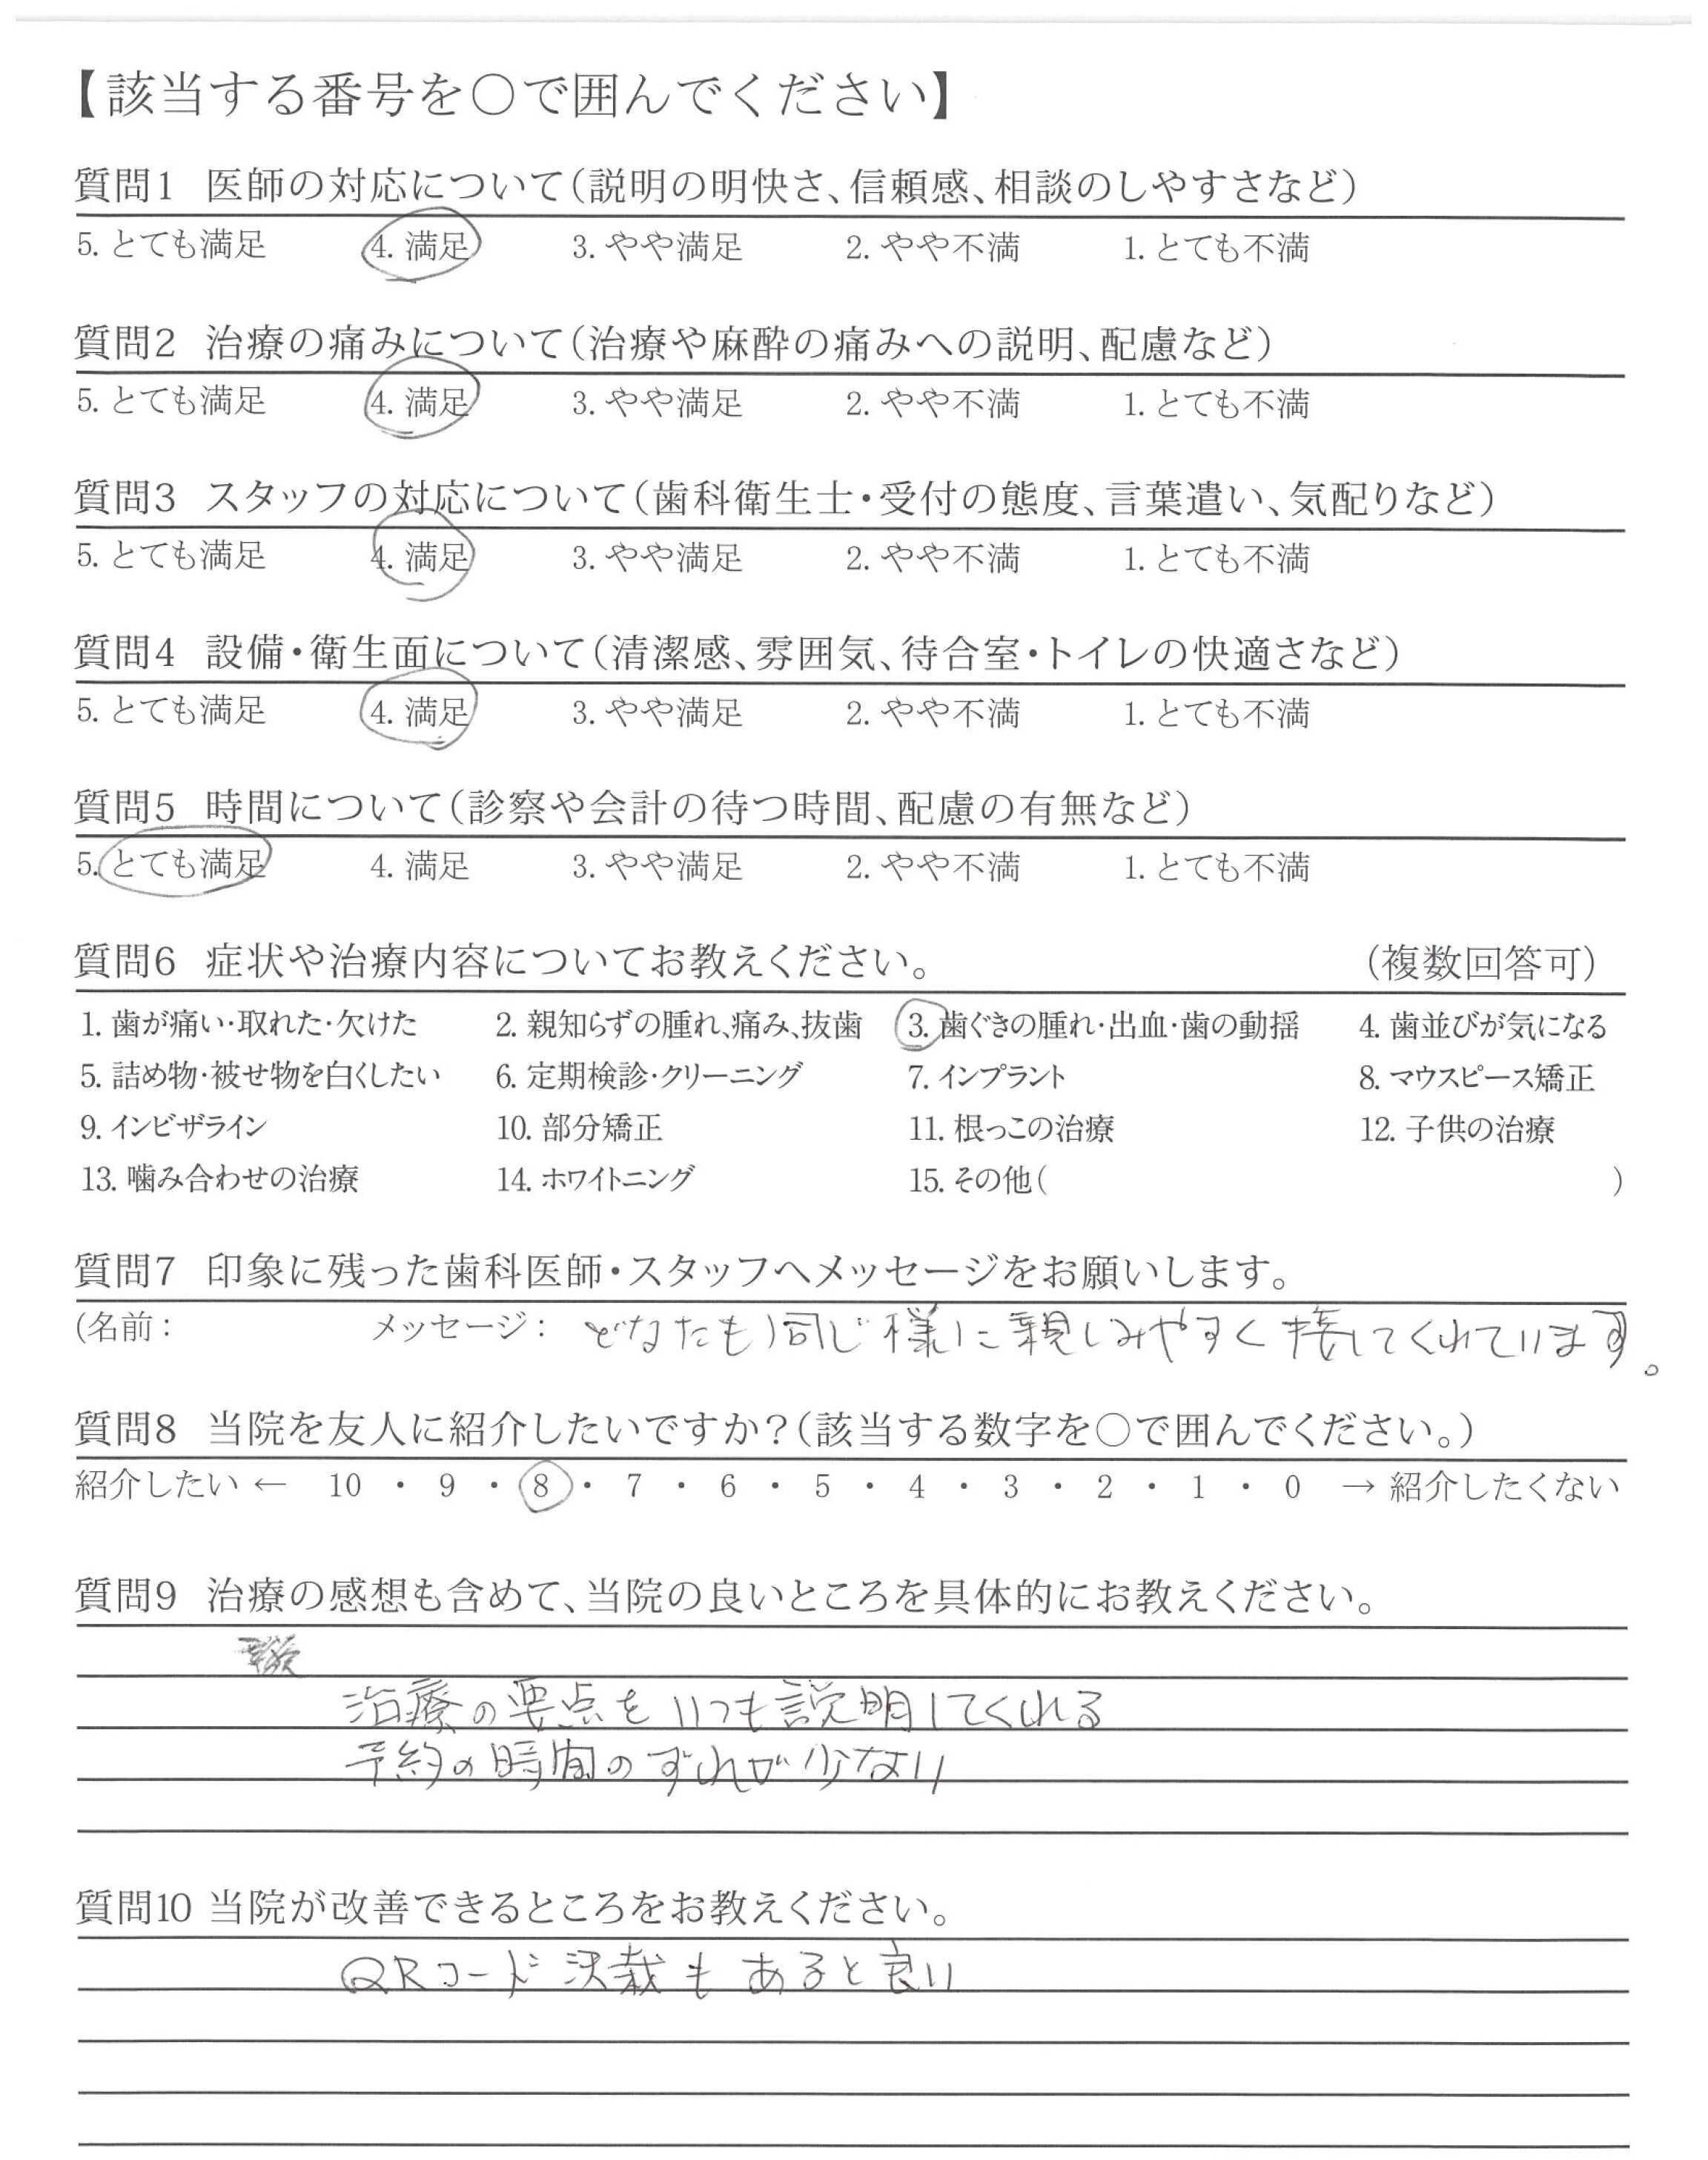 【該当する番号を○で囲んでください】
質問1 医師の対応について(説明の明快さ、信頼感、相談のしやすさなど)
5. とても満足 4. 満足 3. やや満足 2. やや不満 1. とても不満
質問2 治療の痛みについて(治療や麻酔の痛みへの説明、配慮など)
5. とても満足 4. 満足 3. やや満足 2. やや不満 1. とても不満
質問3 スタッフの対応について(歯科衛生士・受付の態度、言葉遣い、気配りなど)
5. とても満足 4. 満足 3. やや満足 2. やや不満 1. とても不満
質問4 設備・衛生面について(清潔感、雰囲気、待合室・トイレの快適さなど)
5. とても満足 4. 満足 3. やや満足 2. やや不満 1. とても不満
質問5 時間について(診察や会計の待つ時間、配慮の有無など)
5. とても満足 4. 満足 3. やや満足 2. やや不満 1. とても不満
質問6 症状や治療内容についてお教えください。 (複数回答可)
1. 歯が痛い・取れた・欠けた 2. 親知らずの腫れ、痛み、抜歯 3. 歯ぐきの腫れ・出血・歯の動揺 4. 歯並びが気になる
5. 詰め物・被せ物を白くしたい 6. 定期検診・クリーニング 7. インプラント 8. マウスピース矯正
9. インビザライン 10. 部分矯正 11. 根っこの治療 12. 子供の治療
13. 噛み合わせの治療 14. ホワイトニング 15. その他( )
質問7 印象に残った歯科医師・スタッフへメッセージをお願いします。
(名前: メッセージ: どなたも同じ様に親しみやすく接してくれています。
質問8 当院を友人に紹介したいですか?(該当する数字を○で囲んでください。)
紹介したい ← 10 ・ 9 ・ 8 ・ 7 ・ 6 ・ 5 ・ 4 ・ 3 ・ 2 ・ 1 ・ 0 → 紹介したくない
質問9 治療の感想も含めて、当院の良いところを具体的にお教えください。
治療の要点をいつも説明してくれる
予約の時間のずれが少ない
質問10 当院が改善できるところをお教えください。
QRコード決裁もあると良い